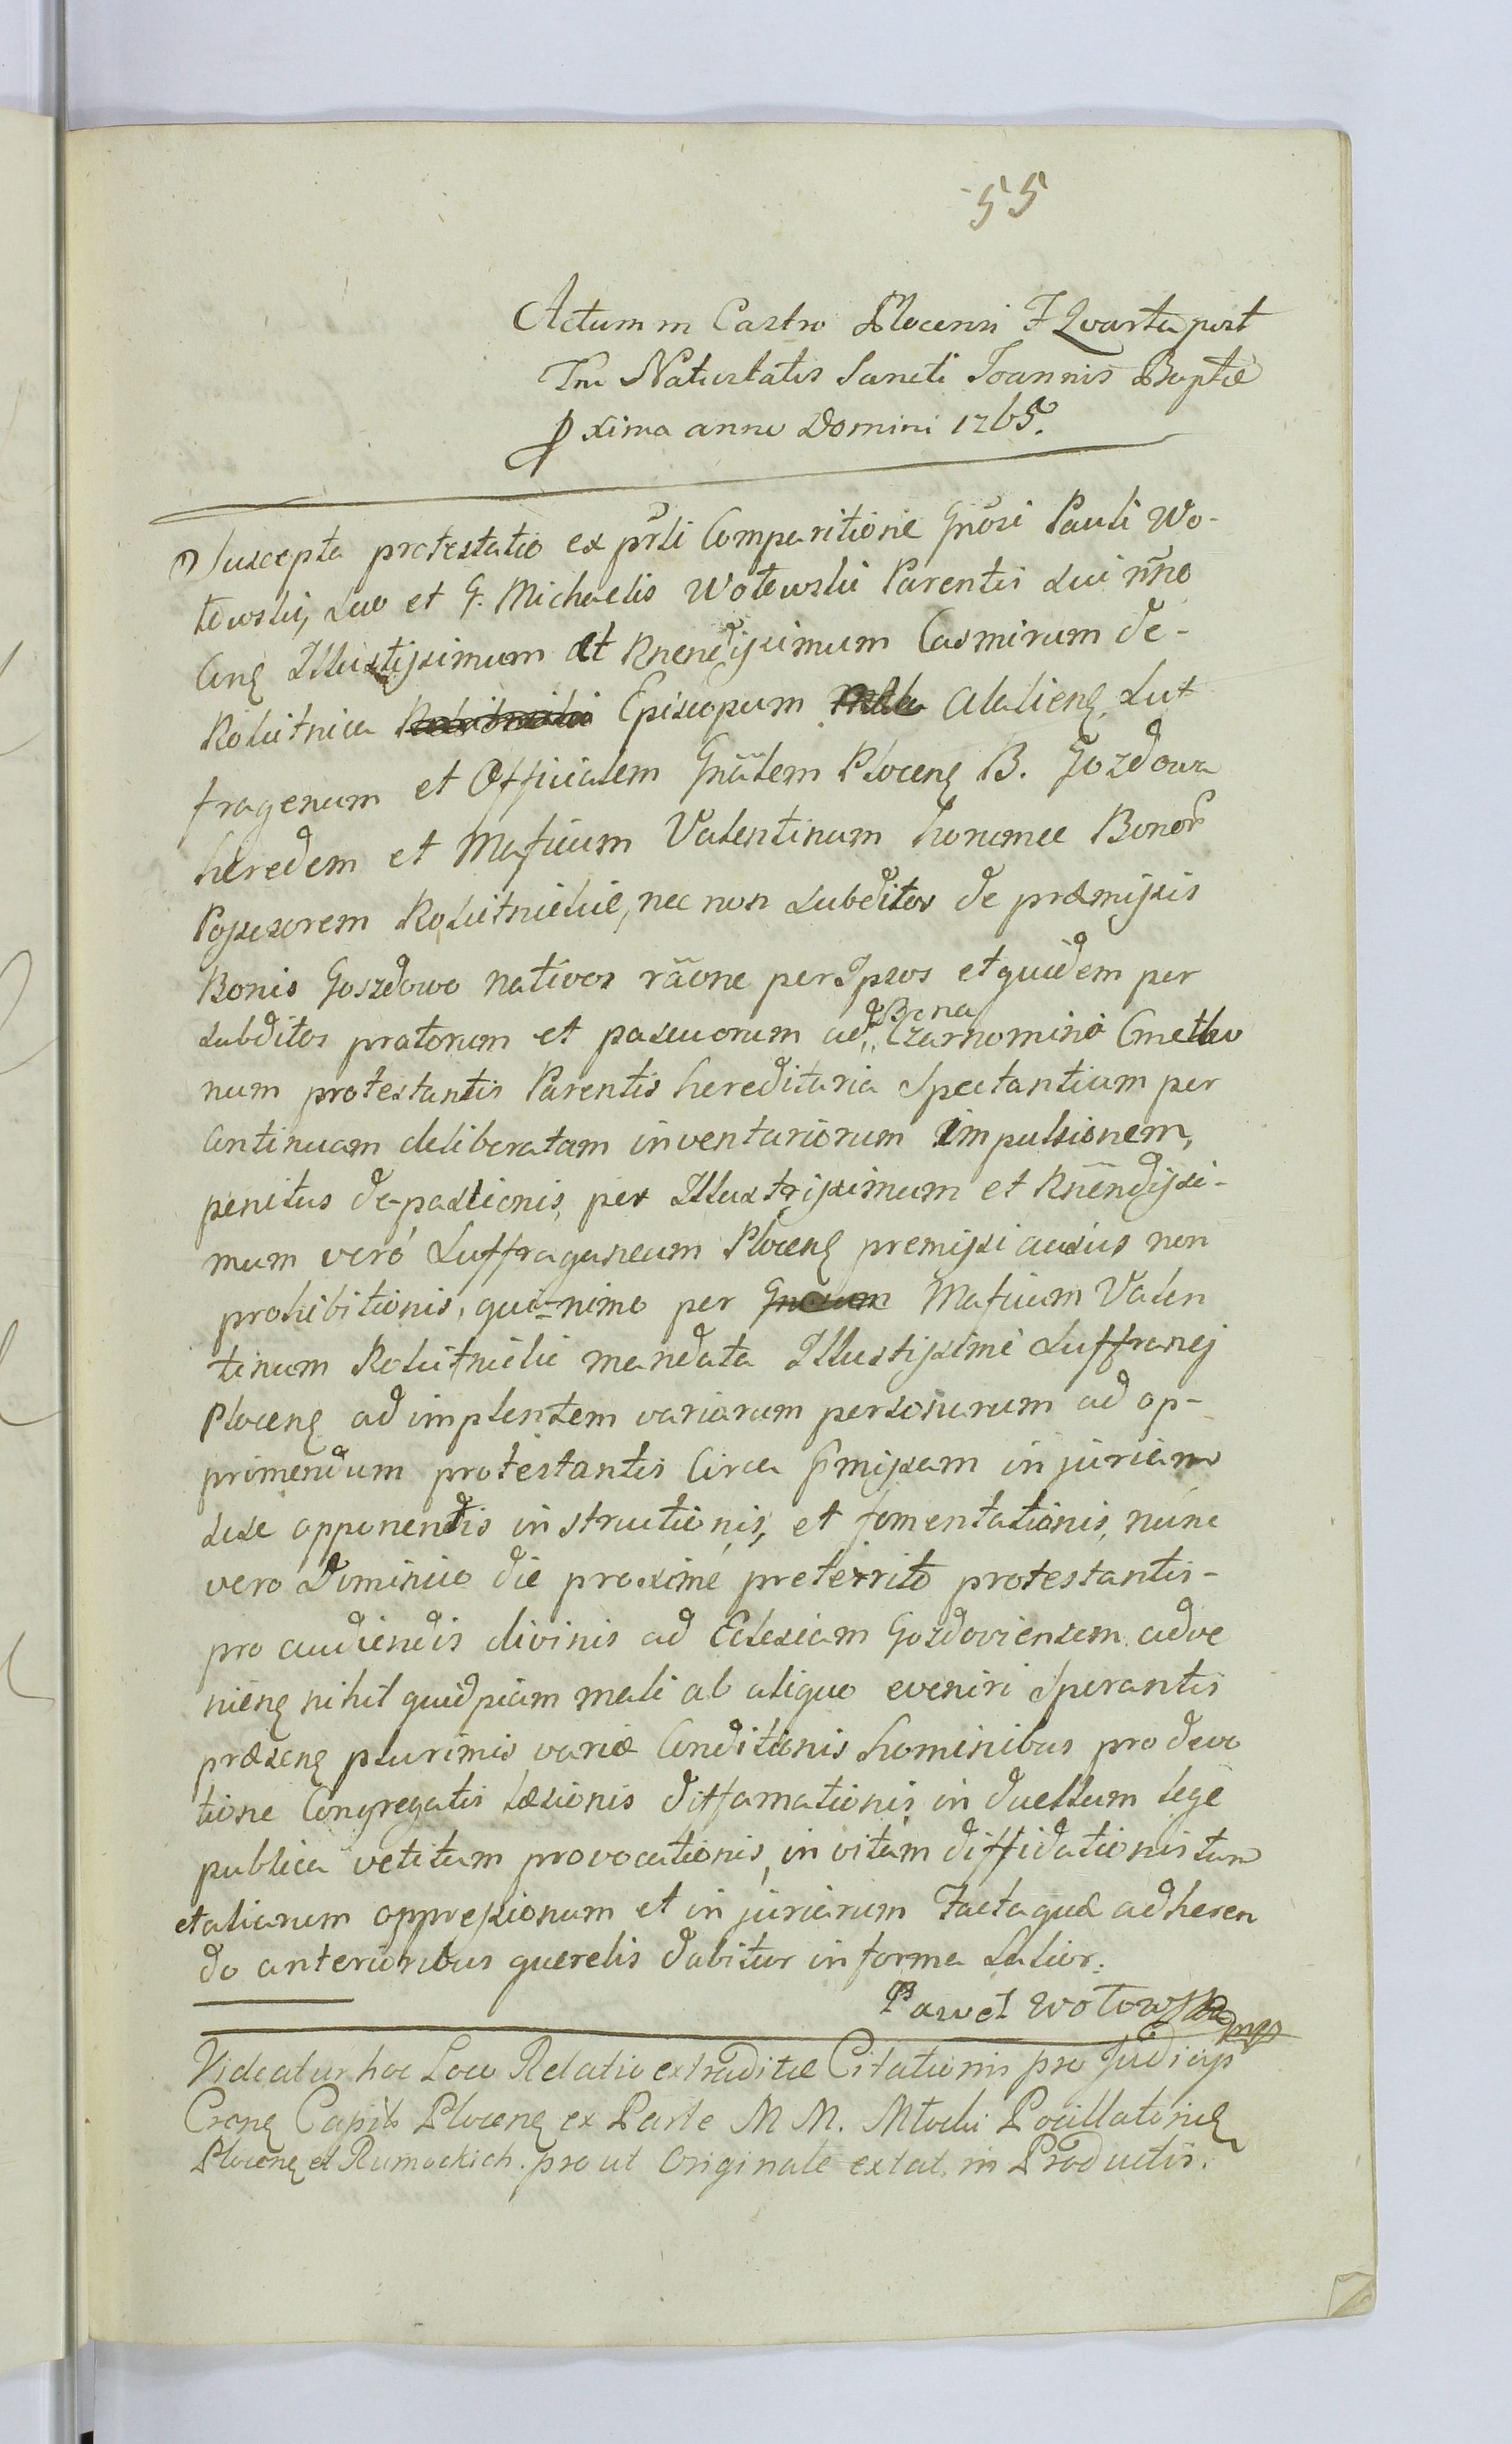 55
Actum in Castro Plocensi F Qvarta post
Fm Nativitatis Sancti Joannis Baptæ
pxima anno Domini 1765.
Suscepta protestatio ex prli Comparitione Gnosi Pauli Wo-
łowski, suo et G. Michaelis Wołowski Parentis sui nno
Cong Illustissimum et Rnendissimum Casmirum de-
Rokitnica Episcopum Alaliens, Suf
fragenum et Officialem Gnalem Plocens B. Gozdowa
heredem et Mafium Valentinum honomce Bonor
Possessorem Rokitnicki, nec non subditos de præmissis
Bonis Goszdowo nativos raone per Ipsos et quidem per
subditos pratorum et pascuorum ad Bona Czarnomino Cmetho
num protestantis Parentis hereditaria Spectantium per
continuam deliberatam inventariorum impulsionem,
penitus de-pastionis, per Illustrissimum et Rnendissi-
mum veró Suffraganeum Plocens premissi ausus non
prohibitionis, qui-nimo per Mafium Valen
tinum Rokitnicki mandata Illustissimi Suffranej
Plocens ad implentem variarum personarum ad op-
primendum protestantis Circa pmissam injuriam
sese opponentis instructionis, et fomentationis, nunc
vero Dominico die proximé preterrito protestantis-
pro audiendis divinis ad Eclesiam Gozdoviensem adve
niens nihil quidpiam mali ab aliquo eveniri Sperantis
præsens plurimis variæ Conditionis hominibus pro devo
tione Congregatis læsionis diffamationis in duellum lege
publica vetitum provocationis, in vitam diffidationis tum
et aliarum oppressionum et injuriarum Facta quæ adheren
do anterioribus querelis dabitur in forma Latior.
Paweł Wołowski mpp
Videatur hoc Loco Relatio extraditæ Citationis pro Judicijs
Crens Capit Plocens ex Parte M M. Młocki Pocillatoris
Plocens et Rumockich. prout Originale extat in Productis.